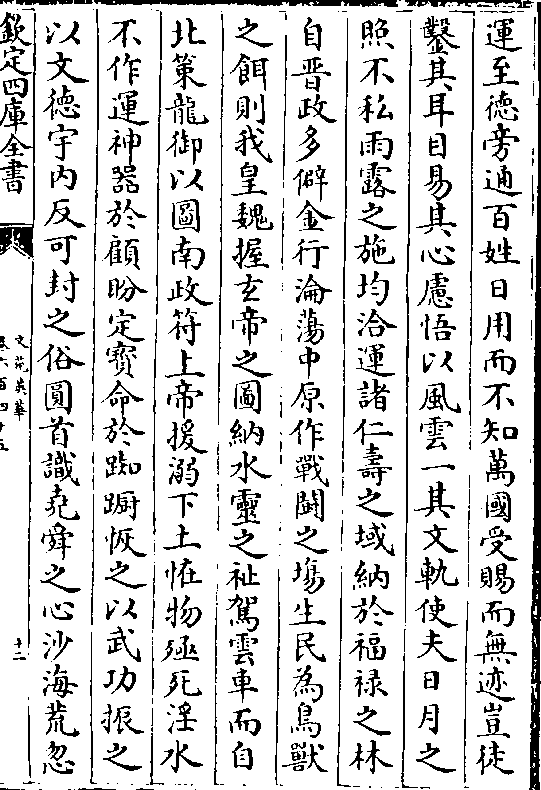 運至徳旁通百姓日用而不知萬國受賜而無迹豈徒
鑿其耳目易其心慮悟以風雲一其文軌使夫日月之
照不私雨露之施均洽運諸仁壽之域納於福禄之林
自晋政多僻金行淪蕩中原作戰鬭之塲生民為鳥獸
之餌則我皇魏握玄帝之圖納水靈之祉駕雲車而自
北策龍御以圖南政符上帝援溺下土恠物殛死淫水
不作運神器於顧盼定寶命於踟蹰恢之以武功振之
以文德宇内反可封之俗圓首識堯舜之心沙海荒忽
欽定四庫全書
文苑英華
卷六百四十五
十二